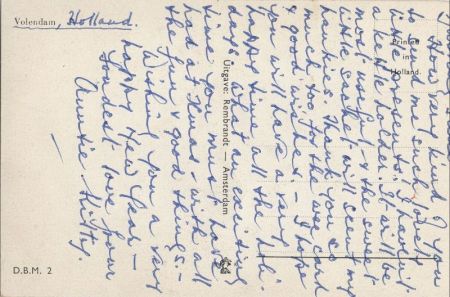 Volendam, Holland.
Printed
in
Holland.
How very kind of you
to send me such lovely
little presents. I haven't
a needle holder. It will be
most useful & the sweet
little sachet will scent my
hankies. Thank you so
much too for the wee card
& good wishes — I hope
you will have a very
happy time all the holi-
days. What an exciting
time you must have
had at Xmas – with all
the fun & good things. –
Wishing you a very
happy New Year —
fondest love from
Auntie Kitty.
Uitgave: Rembrandt — Amsterdam
D.B.M. 2